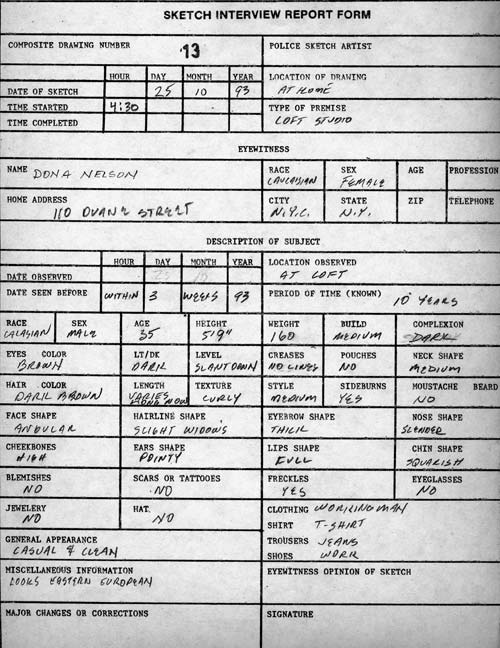 SKETCH INTERVIEW REPORT FORM
COMPOSITE DRAWING NUMBER 13 POLICE SKETCH ARTIST
HOUR DAY MONTH YEAR LOCATION OF DRAWING
DATE OF SKETCH 25 10 93 AT HOME
TIME STARTED 4:30 TYPE OF PREMISE
TIME COMPLETED LOFT STUDIO
EYEWITNESS
NAME DONA NELSON RACE SEX AGE PROFESSION
CAUCASIAN FEMALE
HOME ADDRESS CITY STATE ZIP TELEPHONE
110 DUANE STREET N.Y.C. N.Y.
DESCRIPTION OF SUBJECT
HOUR DAY MONTH YEAR LOCATION OBSERVED
DATE OBSERVED AT LOFT
DATE SEEN BEFORE WITHIN 3 WEEKS 93 PERIOD OF TIME (KNOWN) 10 YEARS
RACE SEX AGE HEIGHT WEIGHT BUILD COMPLEXION
CACASIAN MALE 35 5'9" 160 MEDIUM DARK
EYES COLOR LT/DK LEVEL CREASES POUCHES NECK SHAPE
BROWN DARK SLANT DOWN NO LINES NO MEDIUM
HAIR COLOR LENGTH TEXTURE STYLE SIDEBURNS MOUSTACHE BEARD
DARK BROWN VARIES LONG NOW CURLY MEDIUM YES NO
FACE SHAPE HAIRLINE SHAPE EYEBROW SHAPE NOSE SHAPE
ANGULAR SLIGHT WIDOWS THICK SLENDER
CHEEKBONES EARS SHAPE LIPS SHAPE CHIN SHAPE
HIGH POINTY FULL SQUARISH
BLEMISHES SCARS OR TATTOOES FRECKLES EYEGLASSES
NO NO YES NO
JEWELERY HAT CLOTHING WORKINGMAN
NO NO SHIRT T-SHIRT
GENERAL APPEARANCE TROUSERS JEANS
CASUAL & CLEAN SHOES WORK
MISCELLANEOUS INFORMATION EYEWITNESS OPINION OF SKETCH
LOOKS EASTERN EUROPEAN
MAJOR CHANGES OR CORRECTIONS SIGNATURE